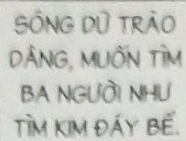 SÓNG DỮ TRÀO
DÂNG, MUỐN TÌM
BA NGƯỜI NHƯ
TÌM KIM ĐÁY BỂ.